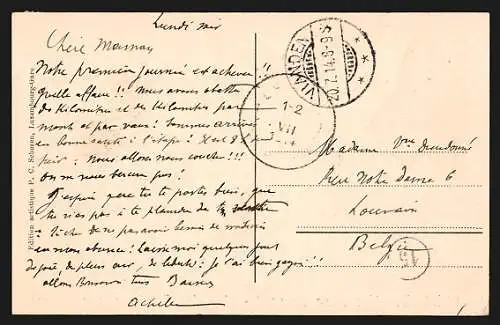 Lundi soir
Chère Maman
Notre première journée est achevée !!
quelle affaire !! Nous avons abattu
des Kilomètres et des Kilomètres par
mont et par vaux : Sommes arrivés
en bonne santé à l'étape : Il est 8 h
soir. Nous allons nous coucher !!!
on ne nous bercera pas !
J'espère que tu te portes bien, que
tu n'as pas à te plaindre de
!! Tâche de ne pas avoir besoin de médecin
en mon absence : Laisse moi quelques jours
de paix, de plein air, de liberté : Je l'ai bien gagné !!
allons Bonsoir
Achille
Édition artistique P. C. Schoren, Luxembourg-Gare
VIANDEN
20.7.14.8-9 S
1-2
VII
Madame Vve Dieudonné
Rue Notre Dame 6
Louvain
Belgique